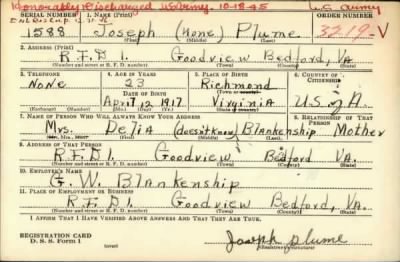 Honorably Discharged U.S. Army. 10-18-45 U.S. Army
SERIAL NUMBER 1. NAME (Print) ORDER NUMBER
1588 Joseph (None) Plume 3219-V
(First) (Middle) (Last)
2. ADDRESS (Print)
R.F.D 1. Goodview Bedford, VA.
(Number and street or R. F. D. number) (Town) (County) (State)
3. TELEPHONE 4. AGE IN YEARS 5. PLACE OF BIRTH 6. COUNTRY OF CITIZENSHIP
None 23 Richmond
DATE OF BIRTH (Town or county)
April 12 1917 Virginia U.S of A.
(Exchange) (Number) (Mo.) (Day) (Yr.) (State or country)
7. NAME OF PERSON WHO WILL ALWAYS KNOW YOUR ADDRESS 8. RELATIONSHIP OF THAT PERSON
Mrs. Delia (doesn't know) Blankenship Mother
(Mr., Mrs., Miss) (First) (Middle) (Last)
9. ADDRESS OF THAT PERSON
R.F.D 1. Goodview Bedford VA.
(Number and street or R. F. D. number) (Town) (County) (State)
10. EMPLOYER'S NAME
G. W. Blankenship
11. PLACE OF EMPLOYMENT OR BUSINESS
R.F.D 1. Goodview Bedford, VA.
(Number and street or R. F. D. number) (Town) (County) (State)
I AFFIRM THAT I HAVE VERIFIED ABOVE ANSWERS AND THAT THEY ARE TRUE.
REGISTRATION CARD
D. S. S. Form 1 (over) Joseph Plume
(Registrant's signature)